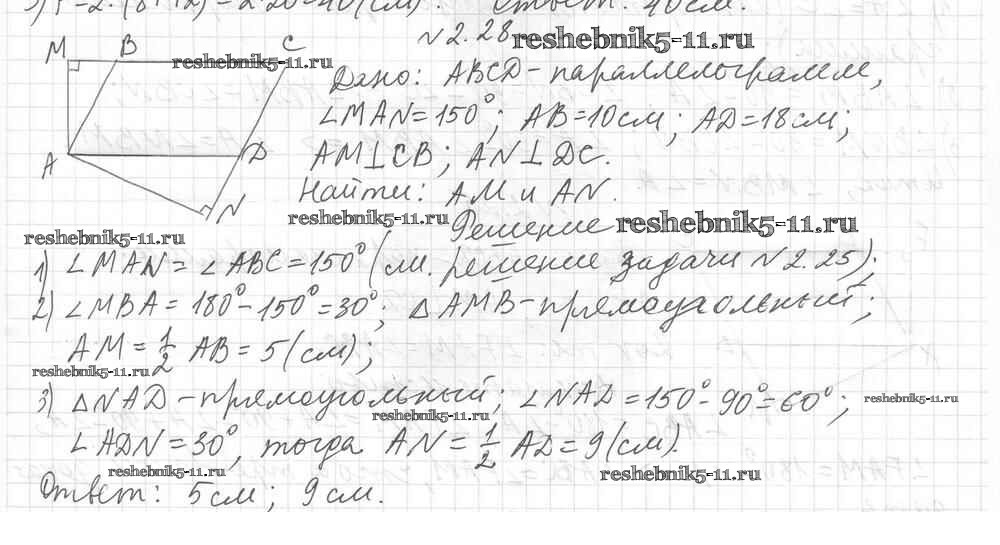 3) P = 2·(8+12) = 2·20 = 40 (см). Ответ: 40 см.
N 2.28 reshebnik5-11.ru
M B C
reshebnik5-11.ru
Дано: ABCD - параллелограмм,
∠MAN = 150°; AB = 10 см; AD = 18 см;
A D
AM ⊥ CB; AN ⊥ DC.
Найти: AM и AN.
N
reshebnik5-11.ru
Решение reshebnik5-11.ru
reshebnik5-11.ru
1) ∠MAN = ∠ABC = 150° (см. решение задачи N 2.25);
2) ∠MBA = 180° - 150° = 30°; △AMB - прямоугольный;
AM = 1/2 AB = 5 (см);
reshebnik5-11.ru
3) △NAD - прямоугольный; ∠NAD = 150° - 90° = 60°;
reshebnik5-11.ru
reshebnik5-11.ru
∠ADN = 30°, тогда AN = 1/2 AD = 9 (см).
reshebnik5-11.ru reshebnik5-11.ru
Ответ: 5 см; 9 см.